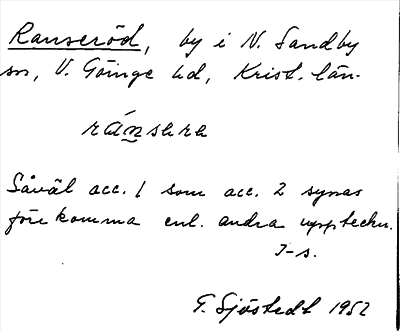 Ranseröd, by i N. Sandby
sn, V. Göinge hd, Krist. län.
ránsƨrƨ
Såväl acc. 1 som acc. 2 synas
förekomma enl. andra uppteckn.
I-s.
G. Sjöstedt 1952